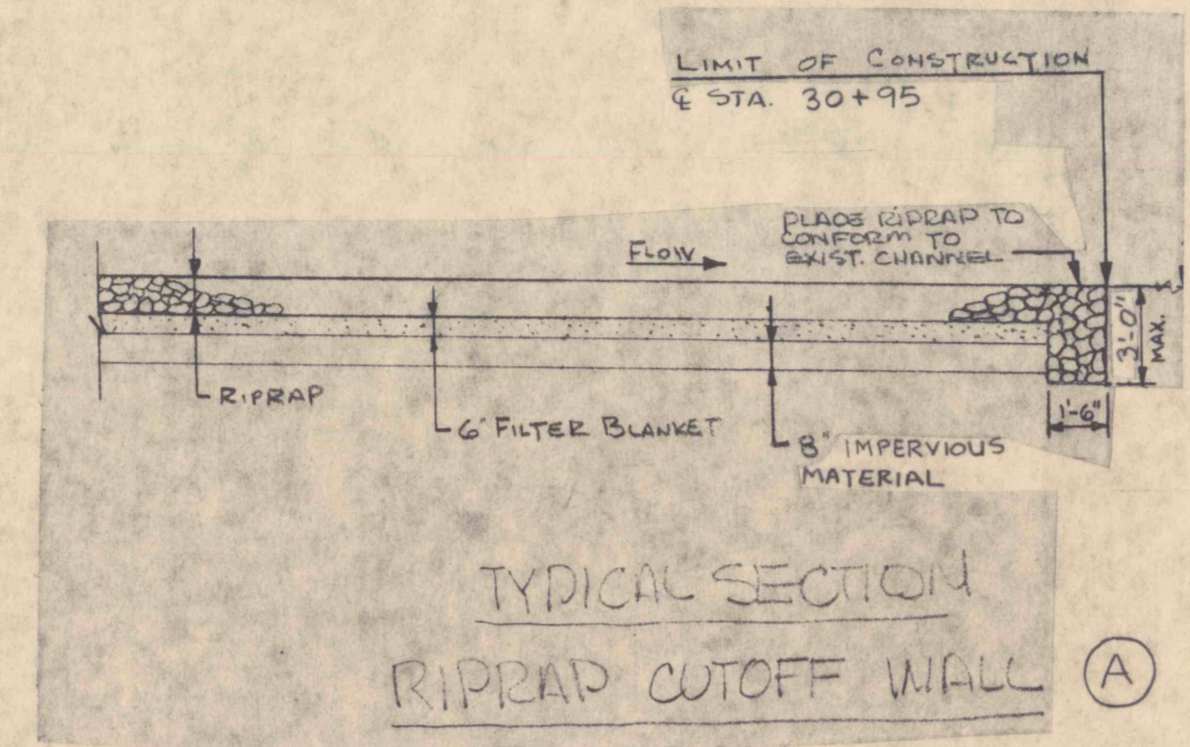 LIMIT OF CONSTRUCTION
℄ STA. 30+95
PLACE RIPRAP TO
CONFORM TO
EXIST. CHANNEL
FLOW
3'-0"
MAX.
1'-6"
RIPRAP
6" FILTER BLANKET
8" IMPERVIOUS
MATERIAL
TYPICAL SECTION
RIPRAP CUTOFF WALL
A